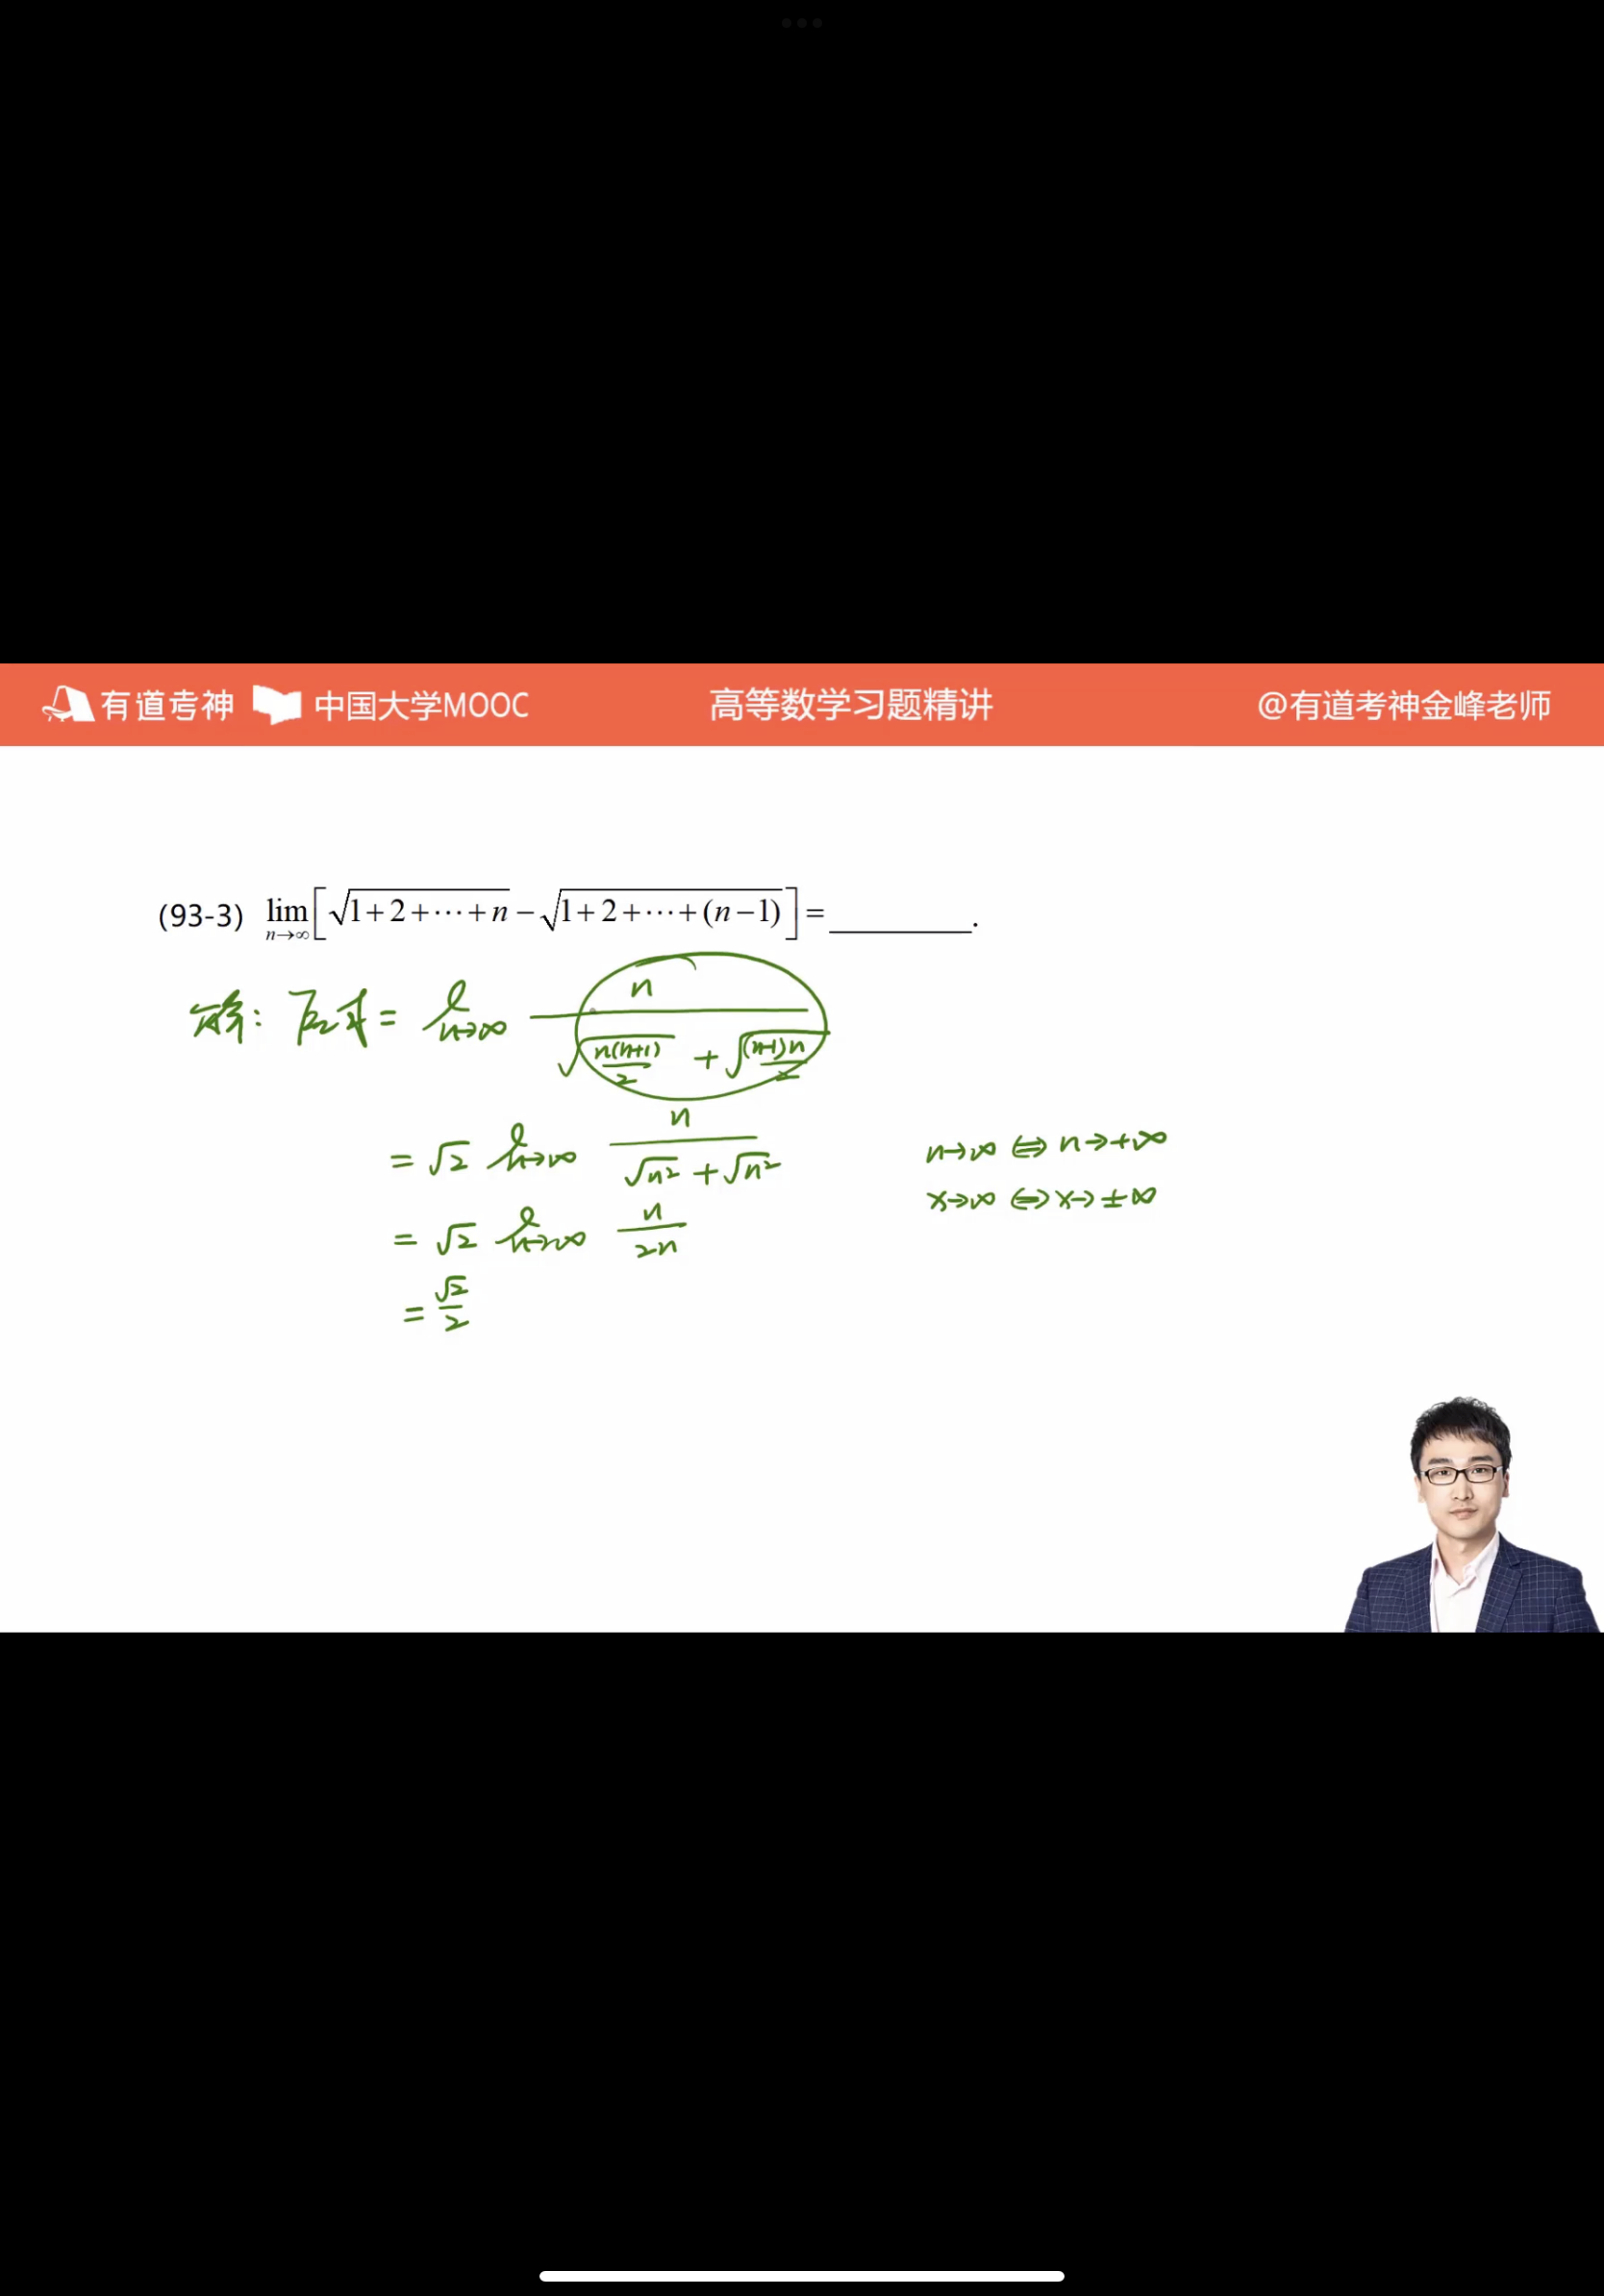 有道考神 中国大学MOOC 高等数学习题精讲 @有道考神金峰老师
(93-3) lim n→∞ [√1+2+⋯+n − √1+2+⋯+(n−1)] = ________.
解: 原式 = lim n→∞ n / (√(n(n+1)/2) + √((n-1)n/2))
= √2 lim n→∞ n / (√n² + √n²)
n→∞ ⇔ n→+∞
= √2 lim n→∞ n / 2n
x→∞ ⇔ x→±∞
= √2 / 2